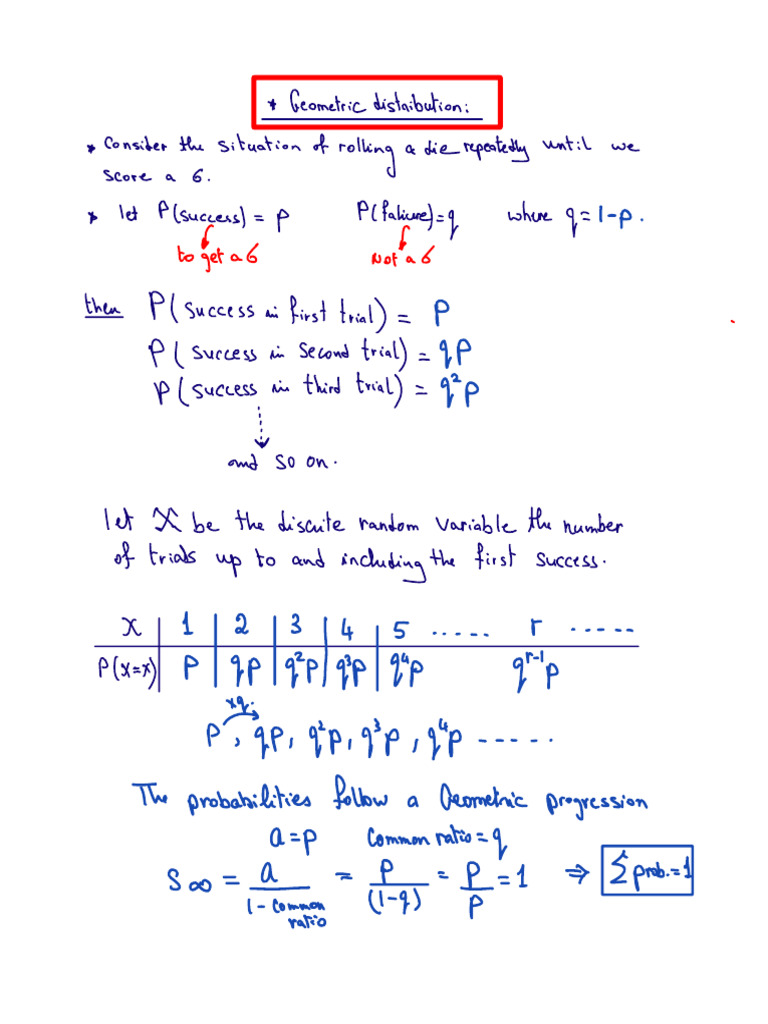 * Geometric distaibution:
* Consider the situation of rolling a die repeatedly until we
score a 6.
* let P(success) = p P(faliure) = q where q = 1-p.
to get a 6 Not a 6
then P(success in first trial) = p
P(success in second trial) = qp
P(success in third trial) = q²p
and so on.
let X be the discute random variable the number
of trials up to and including the first success.
x 1 2 3 4 5 ..... r .....
P(X=x) p qp q²p q³p q⁴p qʳ⁻¹p
xq.
p, qp, q²p, q³p, q⁴p -----.
The probabilities follow a Geometric progression
a = p Common ratio = q
S∞ = a / (1 - common ratio) = p / (1-q) = p / p = 1 ⇒ Σ prob. = 1